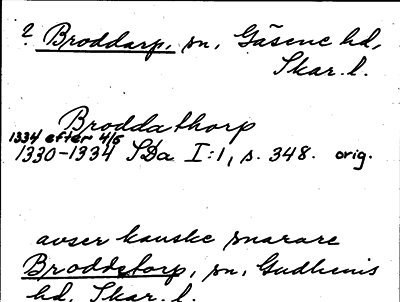 ? Broddarp, sn, Gäsene hd,
Skar. l.
Broddathorp
1334 efter 4/5
1330-1334 SDa I:1, s. 348. orig.
avser kanske snarare
Broddetorp, sn, Gudhems
hd, Skar. l.